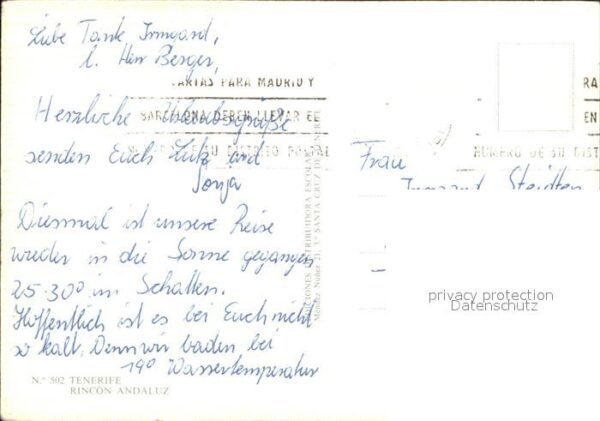 Liebe Tante Irmgard,
l. Herr Berger,
CARTAS PARA MADRID Y
BARCELONA DEBEN LLEVAR EL
NUMERO DE SU DISTRITO POSTAL
Herzliche Urlaubsgrüße
senden Euch Lutz und
Sonja
Diesmal ist unsere Reise
wieder in die Sonne gegangen
25-30° im Schatten.
Hoffentlich ist es bei Euch nicht
so kalt. Denn wir baden bei
19° Wassertemperatur
N.° 502 TENERIFE
RINCÓN ANDALUZ
DISTRIBUIDORA ESCOLAR
Méndez Núñez, 21, 3.° SANTA CRUZ DE TENERIFE
RA
EN
NUMERO DE SU DIST
Frau
Irmgard
privacy protection
Datenschutz